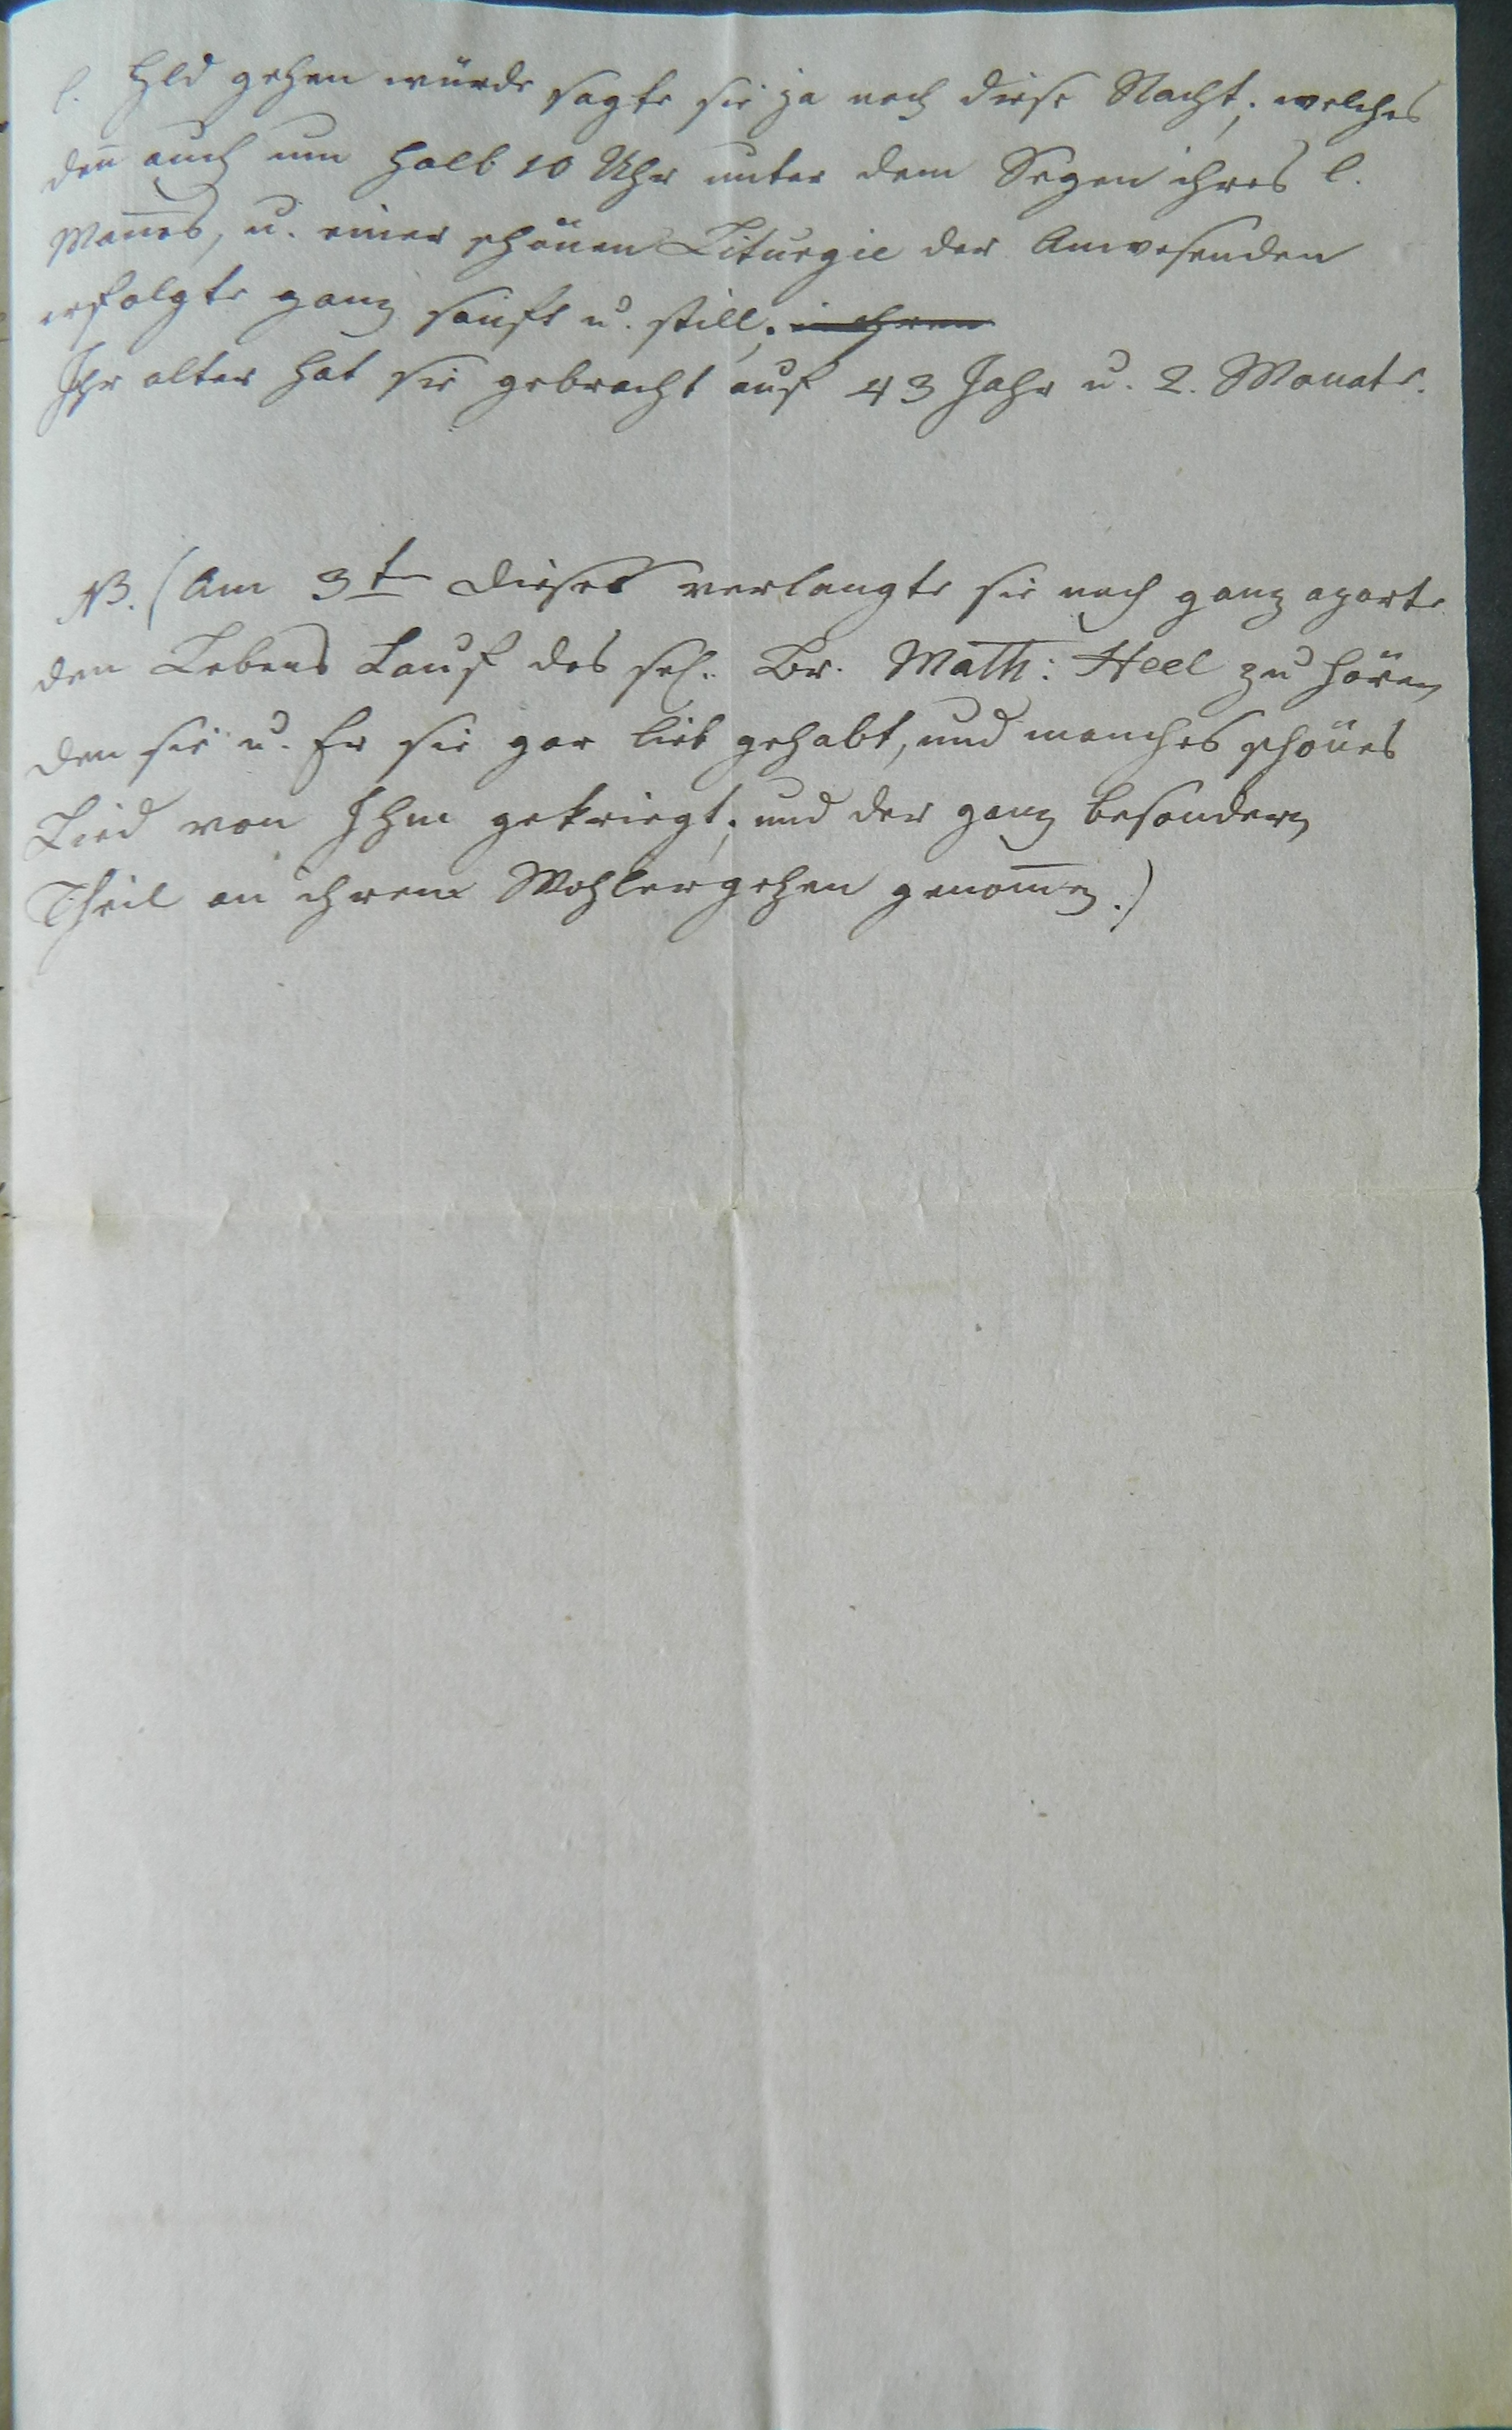 l. Hld gehen würde sagte sie ja noch diese Nacht; welches
deñ auch um halb 10 Uhr unter dem Segen ihres l.
Mañes, u. einer schönen Liturgie der Anwesenden
erfolgte ganz sanft u. still; in ihren
Ihr alter hat sie gebracht auf 43 Jahr u. 2. Monate.
NB. (Am 3t dieses verlangte sie noch ganz aparte
den Lebens Lauf des sel. Br. Math: Heel zu hören
den sie u. Er sie gar lieb gehabt, und manches schönes
Lied von Ihm gekriegt; und der ganz besondern
Theil an ihrem Wohlergehen genom̄en.)